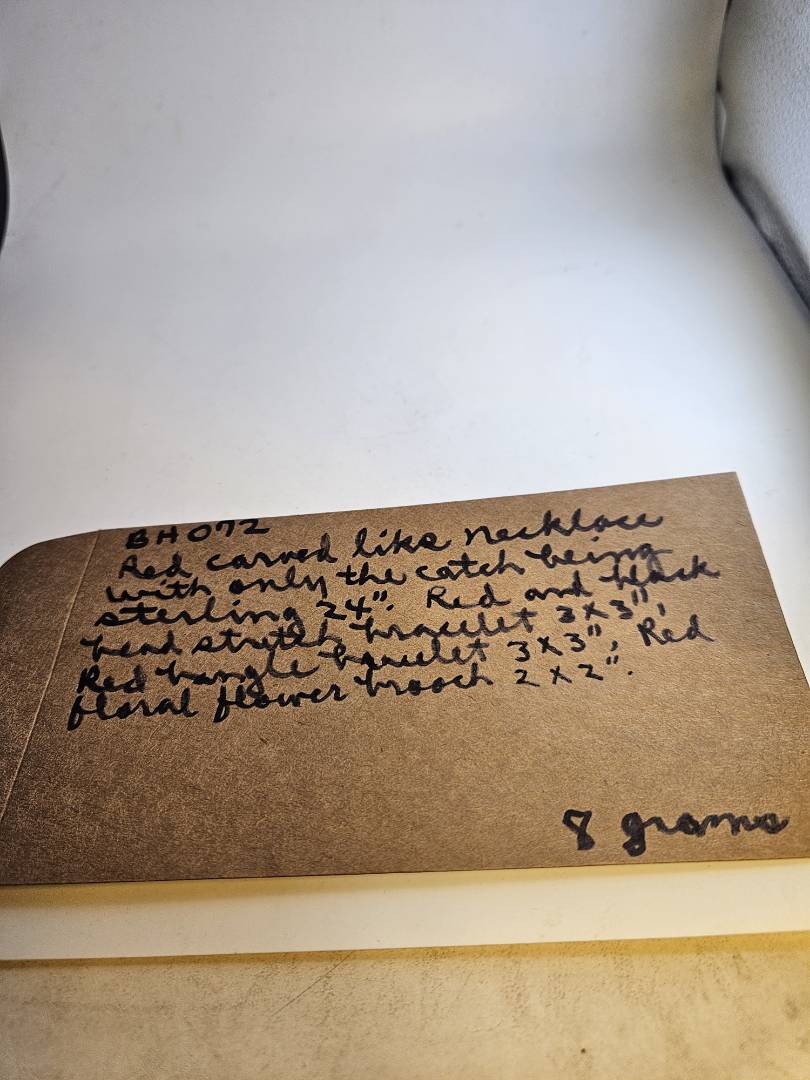 BH072
Red carved like necklace
with only the catch being
sterling 24". Red and black
bead stretch bracelet 3x3",
Red bangle bracelet 3x3", Red
floral flower brooch 2x2".
8 grams